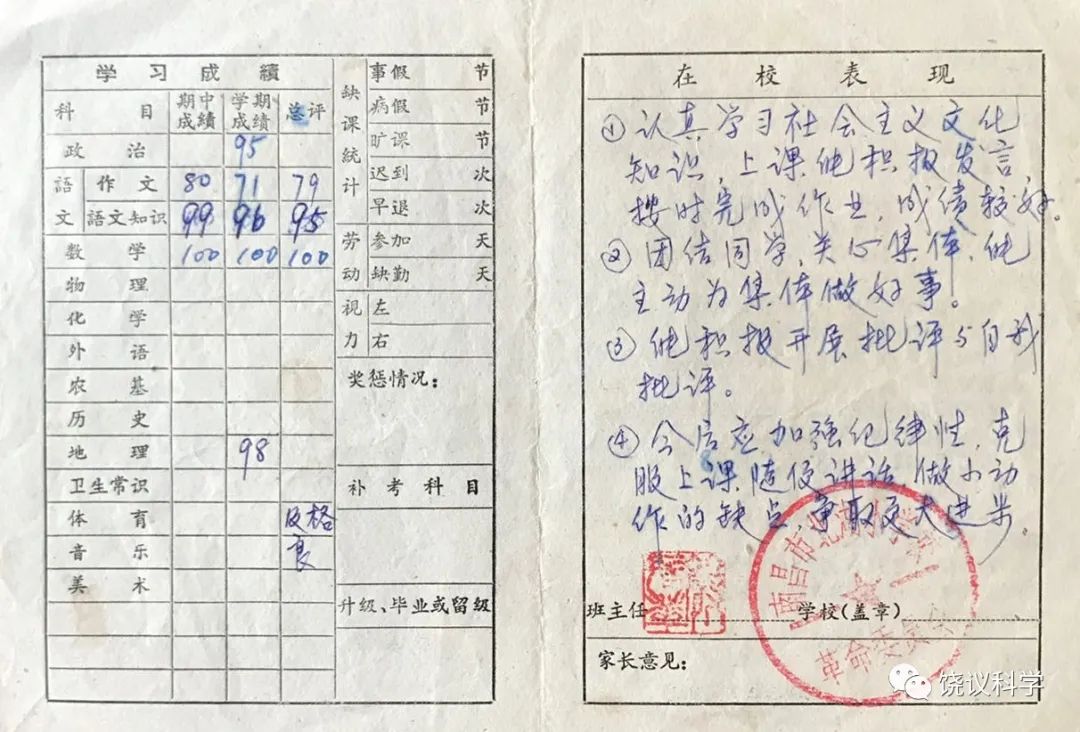 学习成績
科目 期中成績 学期成績 总评
政治 95
語文 作文 80 71 79
語文知识 99 96 95
数学 100 100 100
物理
化学
外语
农基
历史
地理 98
卫生常识
体育 及格
音乐 良
美术
缺课统计
事假 节
病假 节
旷课 节
迟到 次
早退 次
劳动
参加 天
缺勤 天
视力
左
右
奖惩情况：
补考科目
升级、毕业或留级
在校表现
①认真学习社会主义文化
知识，上课能积极发言，
按时完成作业，成绩较好。
②团结同学，关心集体，能
主动为集体做好事。
③能积极开展批评与自我
批评。
④今后应加强纪律性，克
服上课随便讲话，做小动
作的缺点，争取更大进步。
班主任
学校（盖章）
南昌市
革命委员会
家长意见：
饶议科学